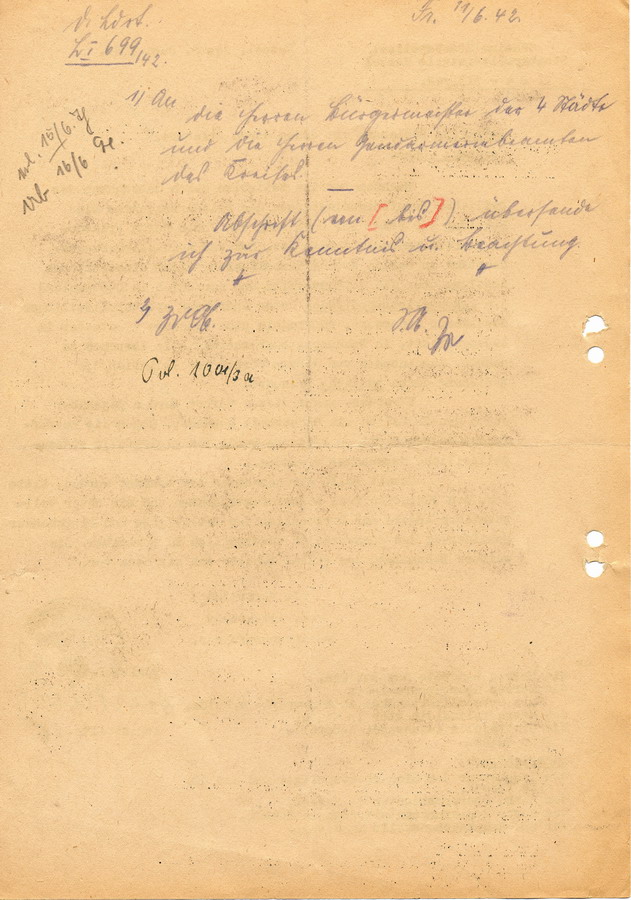 D. Ldrt.
L I 699/42.
Fr. 11/6. 42.
1) An
die Herren Bürgermeister der 4 Städte
und die Herren Gendarmeriebeamten
des Kreises.
Abschrift (von [ bis ] ) übersende
ich zur Kenntnis u. Beachtung.
15/6.
16/6
I.A.
Pol. 100/3a